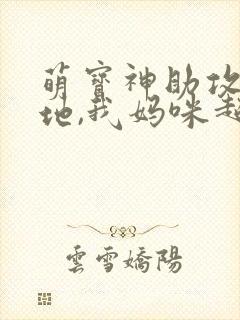 萌寶神助攻
地,我妈咪超
雲雪嬌陽